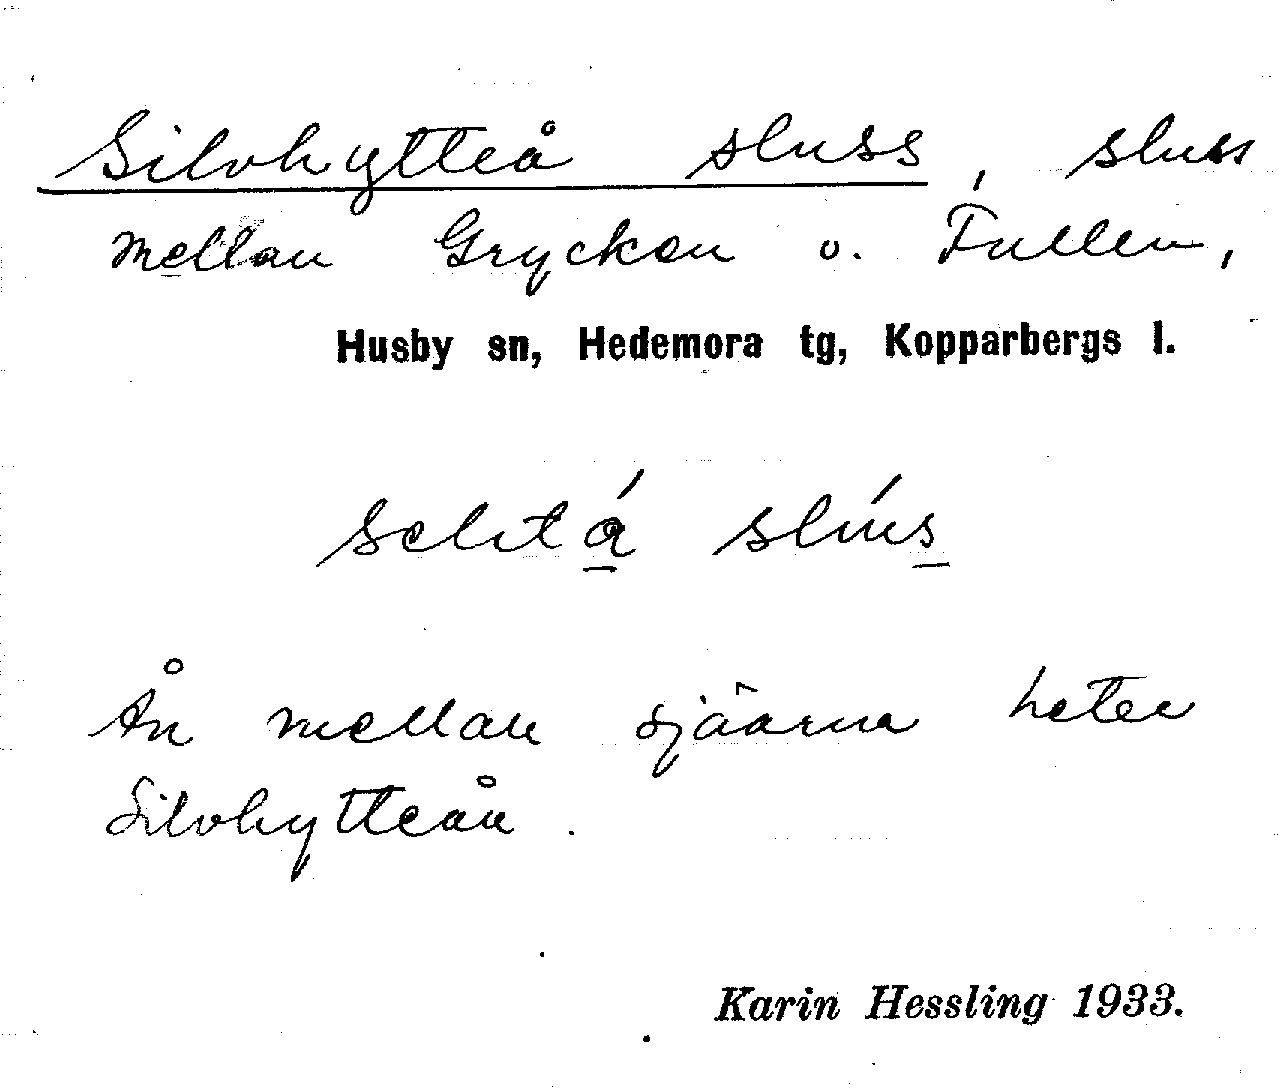 Silvhytteå sluss, sluss
mellan Grycken o. Fullen,
Husby sn, Hedemora tg, Kopparbergs l.
selıtá slús
Ån mellan sjöarna heter
Silvhytteån.
Karin Hessling 1933.